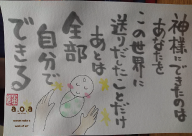 神様にできたのは
あなたを
この世界に
送りだしたことだけ
あとは
全部
自分で
できる